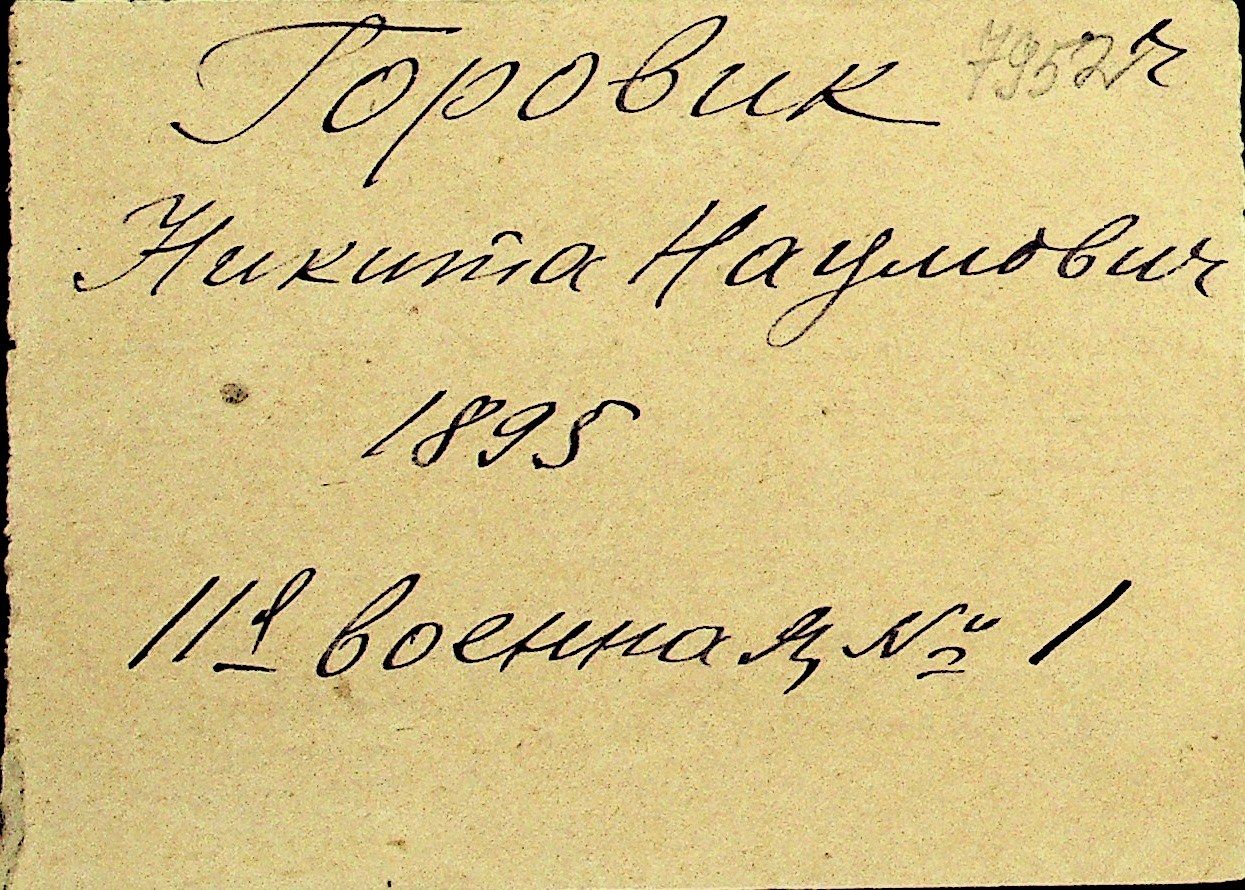 Горовик 7952 ч
Никита Наумович
1895
11я военная, № 1